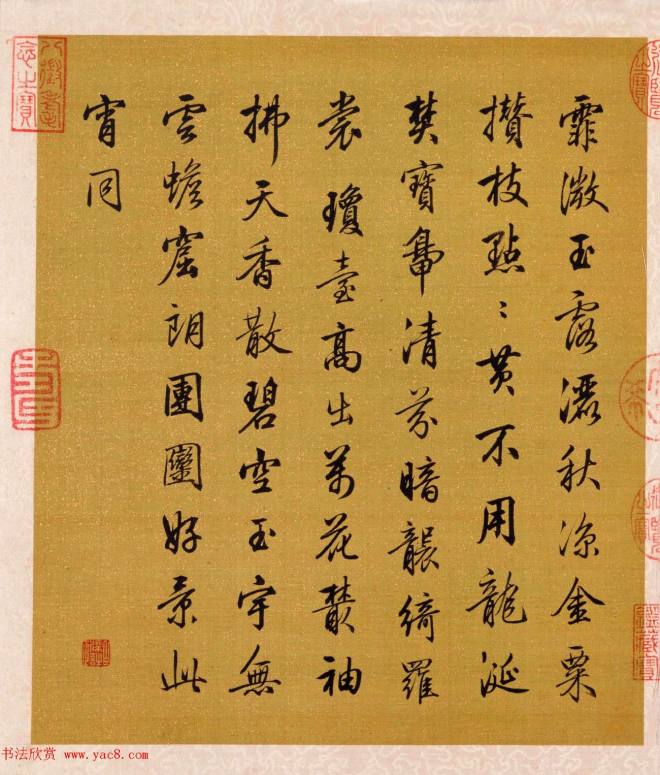 霏微玉露濕秋凉金粟
攅枝點〻黄不用龍涎
焚寶鼎清芬暗襲綺羅
裳瓊臺高出萬花叢袖
拂天香散碧空玉宇無
雲蟾窟朗團圞好景此
宵同
八徵耄念之寶
鑑藏寶
书法欣赏 www.yac8.com